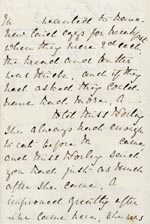 In wanted to have
new laid eggs for breakfast
when they were 3d each,
the bread and butter
was thick, and if they
had asked they could
have had more. A
told Miss Horley
she always had enough
to eat before the came,
and Miss Horley said
you had just as much
after she came. A
improved greatly after
she came here, she was